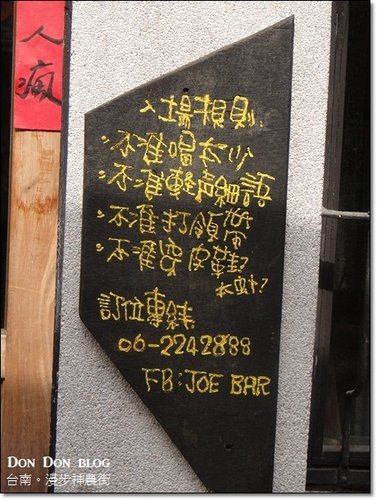 人瘋
入場規則
・不准喝太少
・不准輕声細語
・不准打領帶
・不准穿皮鞋
訂位專線
06-2242888
FB:JOE BAR
DON DON BLOG
台南。漫步神農街